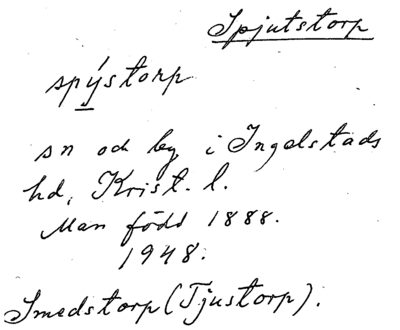 Spjutstorp
spýstorp
sn och by i Ingelstads
hd, Krist. l.
Man född 1888.
1948.
Smedstorp (Tjustorp).